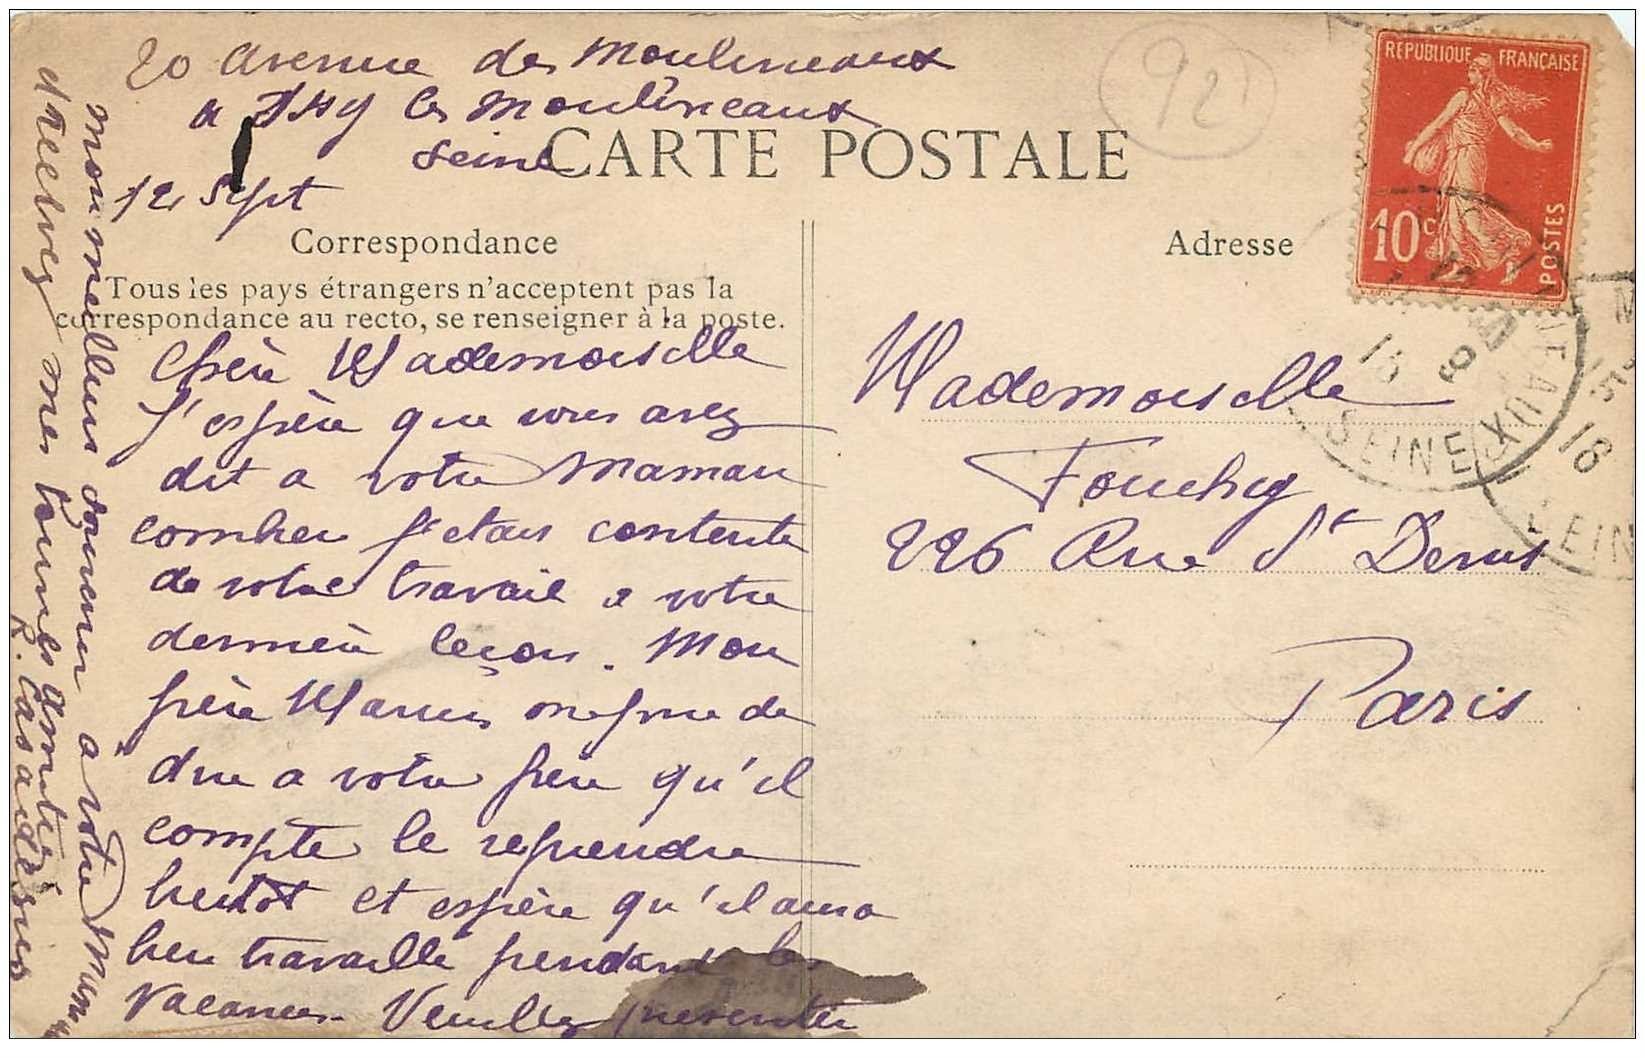 20 avenue des Moulineaux
à Issy les Moulineaux
Seine
12 Sept
92
CARTE POSTALE
RÉPUBLIQUE FRANÇAISE
10c
POSTES
Correspondance
Adresse
Tous les pays étrangers n'acceptent pas la
correspondance au recto, se renseigner à la poste.
Chère Mademoiselle
J'espère que vous avez
dit à votre Maman
combien j'étais contente
de votre travail à votre
dernière leçon. Mon
frère Marius me prie de
dire à votre frère qu'il
compte le reprendre
bientôt et espère qu'il aura
bien travaillé pendant les
Vacances. Veuillez présenter
mon meilleur souvenir à votre Maman
et recevez mes bonnes amitiés
R. Casadesus
Mademoiselle
Fouchy
226 Rue St Denis
Paris
15
8
SEINE
15
16
SEINE